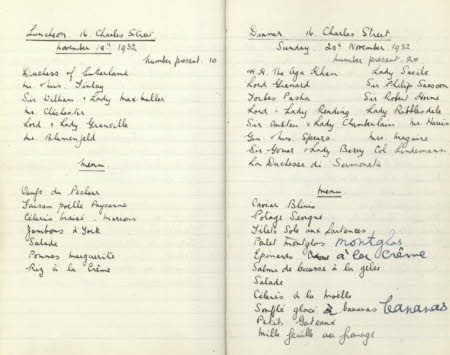 Luncheon. 16. Charles Street
November 18th 1932
number present. 10
Duchess of Sutherland
Mr & Mrs. Finlay
Sir William & Lady Max-Muller
Mr. Chichester
Lord & Lady Granville
Mr. Blumenfeld
Menu
Oeufs du Pecheur
Faisan poelle Paysanne
Céleris braisé. Marrons
Jambons d'York
Salade
Pommes marguerite
Riz à la Crême
Dinner 16. Charles Street
Sunday. 20th November. 1932
number present. 20.
H.H. The Aga Khan Lady Savile
Lord Granard Sir Philip Sassoon
Forbes Pasha Sir Robert Horne
Lord & Lady Reading Lady Ribblesdale
Sir Austen & Lady Chamberlain Mr. Harris
Gen & Mrs. Spears. Mrs. Maguire
Sir Gomer & Lady Berry Col. Lindemann
La Duchesse di Sermoneta
Menu
Caviar Blinis
Potage Sevigne
Filets Sole aux Laitances
Poulet Montglas montglas
Epinards a la crême
Salmi de becasse à la gelee
Salade
Céleris à la moëlle
Soufflé glacé à bananas bananas
Petits Gateaux
Mille feuille au fromage